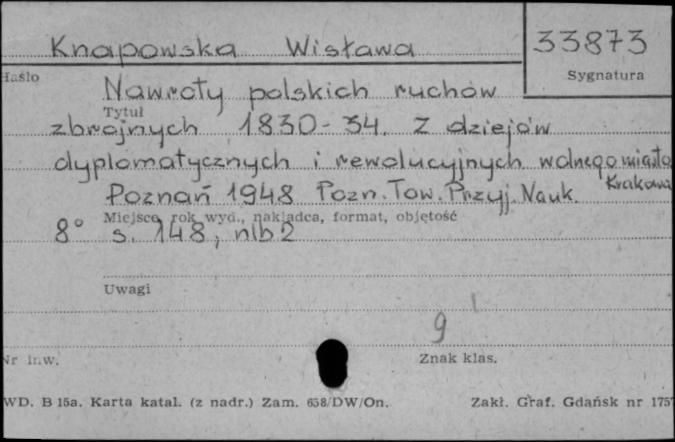 Knapowska Wisława
33873
Hasło
Sygnatura
Nawroty polskich ruchów
Tytuł
zbrojnych 1830-34. Z dziejów
dyplomatycznych i rewolucyjnych wolnego miasta
Krakowa
Poznań 1948 Pozn. Tow. Przyj. Nauk.
Miejsce, rok wyd., nakładca, format, objętość
8° s. 148, nlb 2
Uwagi
9
Nr inw.
Znak klas.
WD. B 15a. Karta katal. (z nadr.) Zam. 658/DW/On.
Zakł. Graf. Gdańsk nr 175